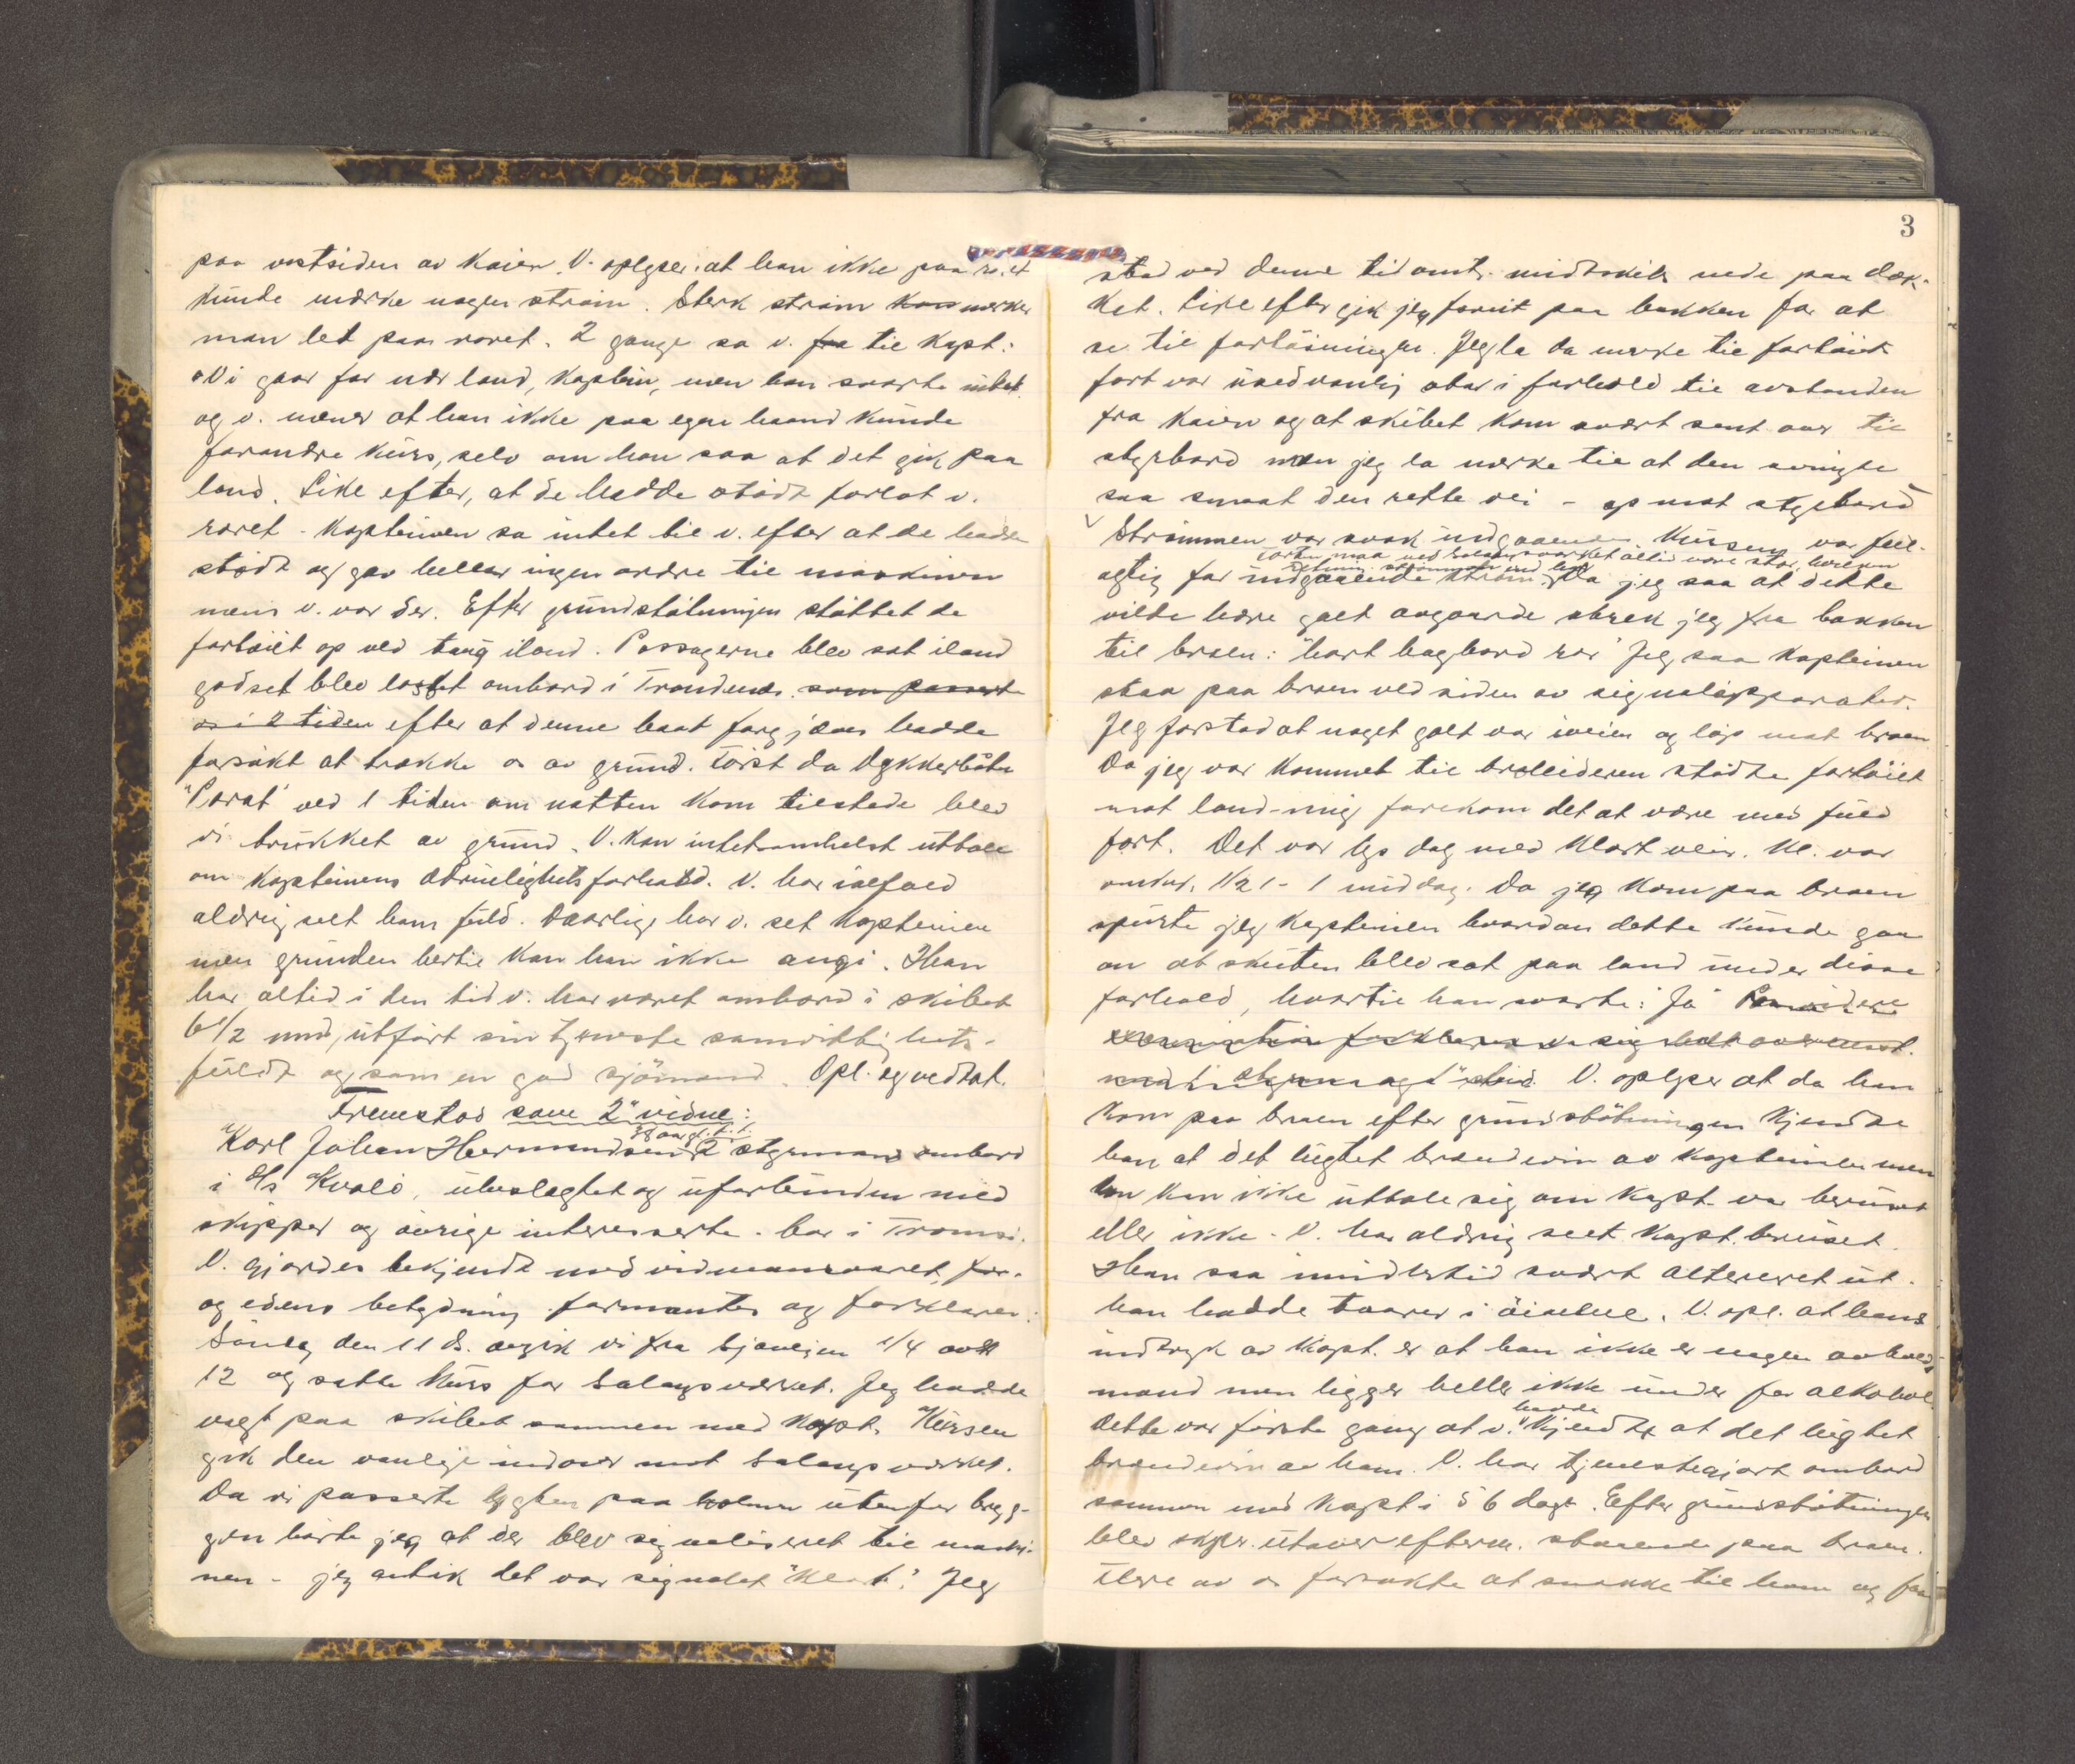 paa vestsiden av kaien. V. oplyser at han ikke paa roret
kunde mærke nogen strøm. Sterk strøm kan mærker
man let paa roret. 2 gange sa v. fra til Kapt:
"Vi gaar for nær land, Kaptein, men han svarte intet
og v. mener at han ikke paa egen haand kunde
forandre kurs, selv om han saa at det gik paa
land. Like efter, at de hadde stødt forlot v.
roret - Kapteinen sa intet til v. efter at de hadde
stødt og gav heller ingen ordre til maskinen
mens v. var der. Efter grundstøtningen støttet de
fartøiet op ved taug iland. Passagerne blev sat iland
godset blev lastet ombord i Trondenes. som passert
os i 2 tiden efter at denne baat forgjæves hadde
forsøkt at trække os av grund. Først da dykkerbåten
"Parat" ved 1 tiden om natten kom tilstede blev
vi trukket av grund. V. kan intetsomhelst uttale
om Kapteinens ædruelighetsforhold. V. har ialfald
aldrig seet ham fuld. Daarlig har v. set Kapteinen
men grunden hertil kan han ikke angi. Han
har altid i den tid v. har været ombord i skibet
6 1/2 mnd, utført sin tjeneste samvittighets-
fuldt og som en god sjømand. Opl. og vedtat.
Fremstod som 2" vidne:
38 aar gl. f. i.
Karl Johan Hermandsen 2 styrmand ombord
i S/s Kvalø, ubeslægtet og uforbunden med
skipper og øvrige interesserte. bor i Tromsø.
V. gjordes bekjendt med vidneansvaret, for-
og edens betydning formantes og forklarer:
Søndag den 11 ds. avgik vi fra Sjøvegan 1/4 over
12 og satte kurs for Salangsverket. Jeg hadde
vagt paa skibet sammen med Kapt. Kursen
gik den vanlige indover mot Salangsverket.
Da vi passerte lygten paa holmen utenfor bryg-
gen hørte jeg at der blev signaliseret til maski-
nen - jeg antok det var signalet "Klar". Jeg
3
stod ved denne tid omtr. midtskibs nede paa dæk-
ket. Like efter gik jeg forut paa bakken for at
se til fortøiningen. Jeg la da merke til fartøiets
fart var usedvanlig stor i forhold til avstanden
fra kaien og at skibet kom svært sent over til
styrbord men jeg la mærke til at den svingte
saa smaat den rette vei - op mot styrbord
Strømmen var svak indgaaende. Kursen var feil-
Farten maa ved Salangsverket altid være stor, hvis en
agtig for indgaaende strøm. Da jeg saa at dette
vilde bære galt avgaarde skrek jeg fra bakken
til broen: "hart bagbord ror" Jeg saa Kapteinen
staa paa broen ved siden av signalapparatet.
Jeg forstod at noget galt var iveien og løp mot broen
Da jeg var kommet til broleideren stødte fartøiet
mot land - mig forekom det at være med fuld
fart. Det var lys dag med klart veir. Kl. var
omkr. 1/2 1 - 1 middag. Da jeg kom paa broen
spurte jeg Kapteinen hvordan dette kunde gaa
an at skuten blev sat paa land under disse
forhold, hvortil han svarte: "Ja"
V. oplyser at da han
kom paa broen efter grundstøtningen kjendte
han at det lugtet brændevin av Kapteinen men
han kan ikke uttale sig om Kapt. var beruset
eller ikke. V. har aldrig seet Kapt. beruset.
Han saa imidlertid svært altereret ut.
han hadde taarer i øinene. V. opl. at hans
indtryk av Kapt. er at han ikke er nogen avholds-
mand men ligger heller ikke under for alkohol
hadde
Dette var første gang at v. kjendte at det lugtet
brændevin av ham. V. har tjenestegjort ombord
sammen med Kapt i 5 6 dage. Efter grundstøtningen
blev skpr. utover efterm. staaende paa broen.
Flere av os forsøkte at snakke til ham og faa